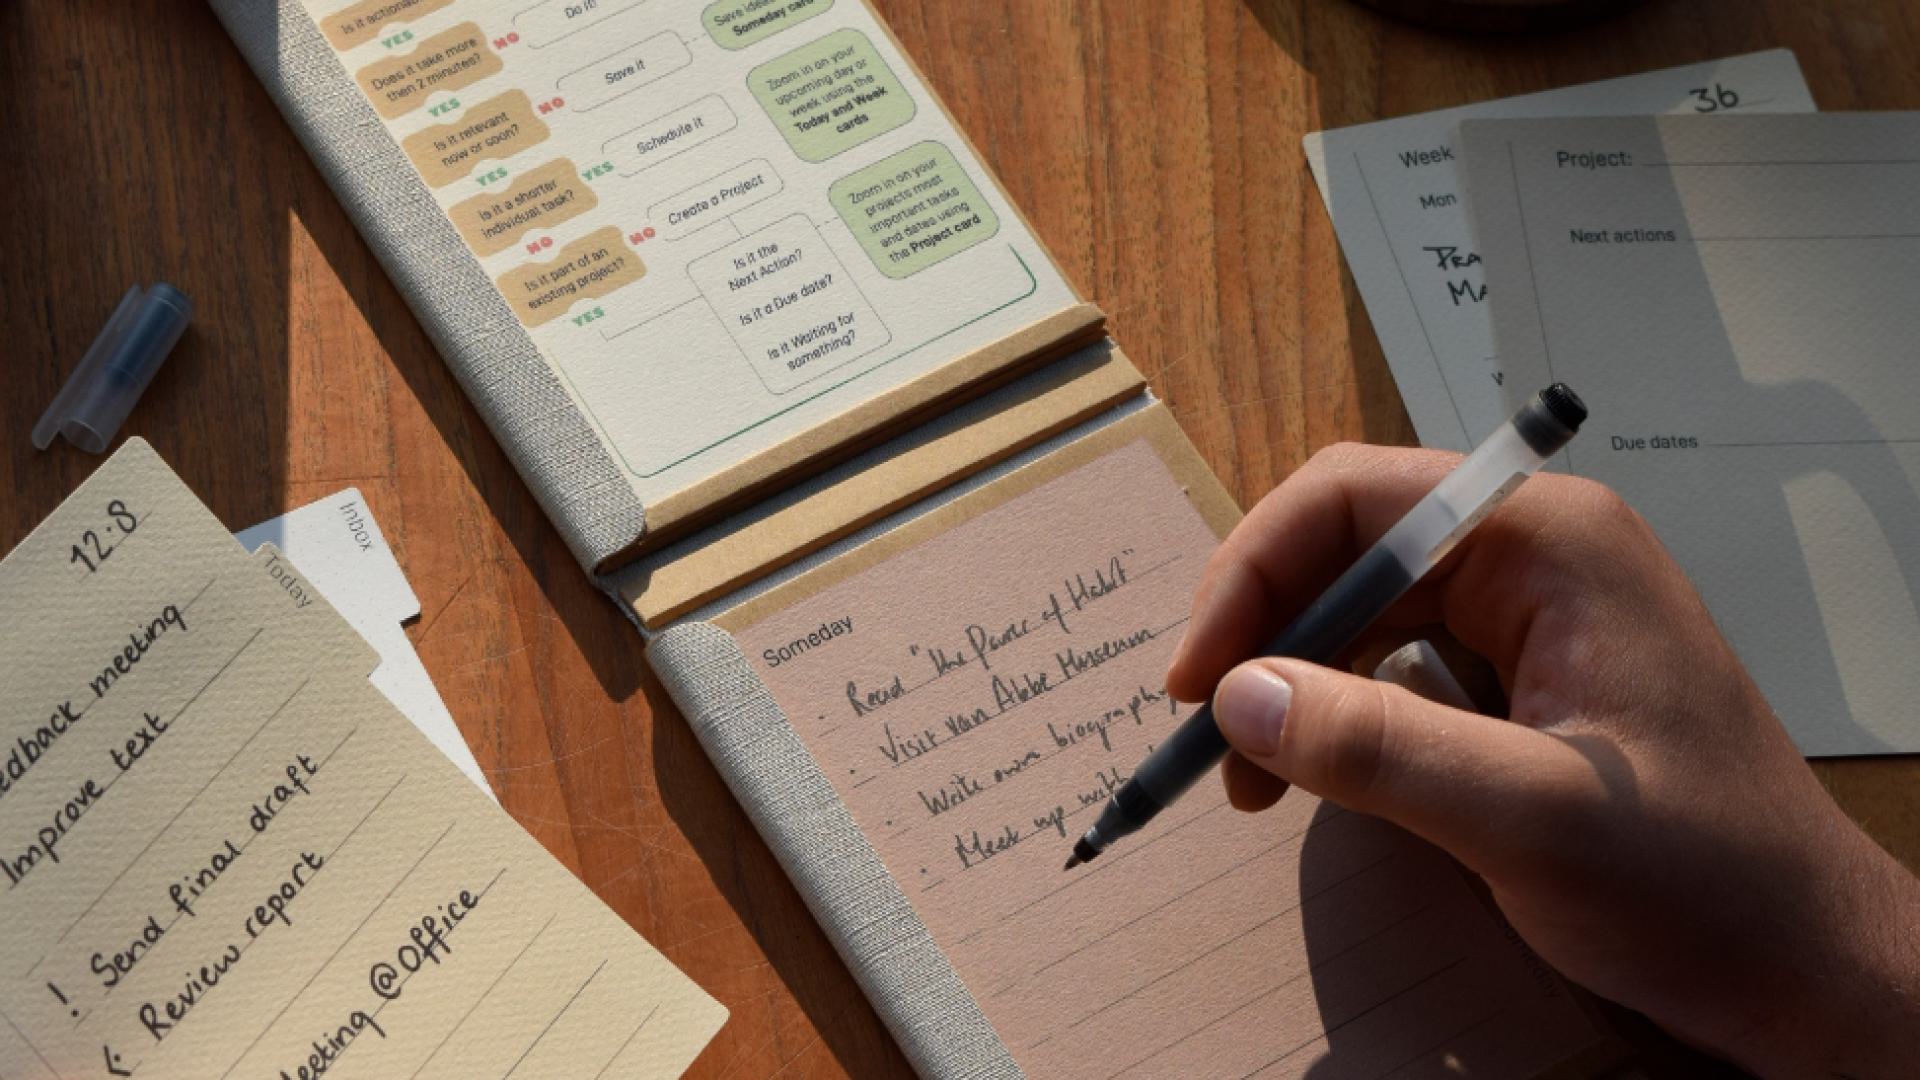 Is it actionable?
YES
NO
Do it!
Does it take more
then 2 minutes?
YES
NO
Save it
Save ideas
Someday card
Is it relevant
now or soon?
YES
YES
Schedule it
Zoom in on your
upcoming day or
week using the
Today and Week
cards
Is it a shorter
individual task?
NO
NO
Create a Project
Is it part of an
existing project?
YES
Is it the
Next Action?
Is it a Due date?
Is it Waiting for
something?
Zoom in on your
projects most
important tasks
and dates using
the Project card
36
Week
Mon
Project:
Next actions
Due dates
Inbox
Today
12.8
meeting
Improve text
! Send final draft
Review report
@Office
Someday
· Read "The Power of Habit"
· Visit van Abbe Museum
· Write own biography
· Meet up with
Someday